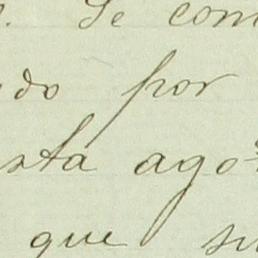 Se com
do por
sta ago
que su